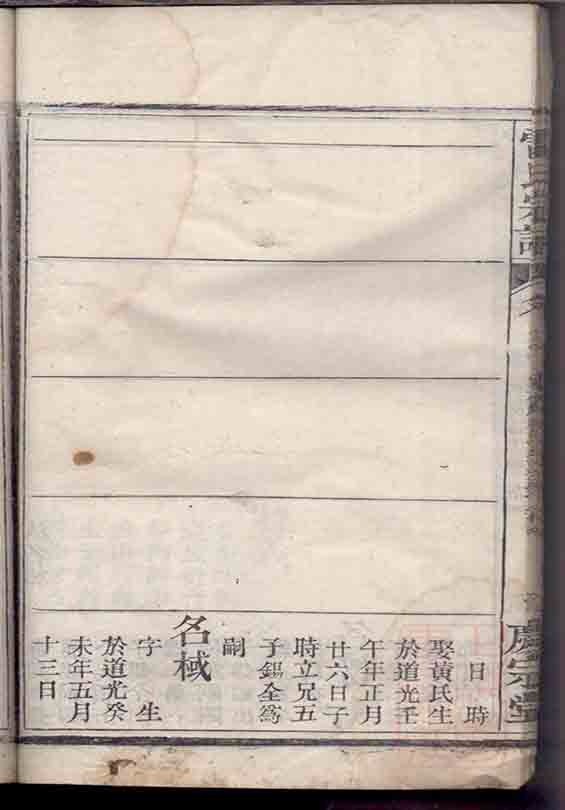 日　時
娶黄氏生
於道光壬
午年正月
廿六日子
時立兄五
子錫全爲
嗣
名棫
字　生
於道光癸
未年五月
十三日